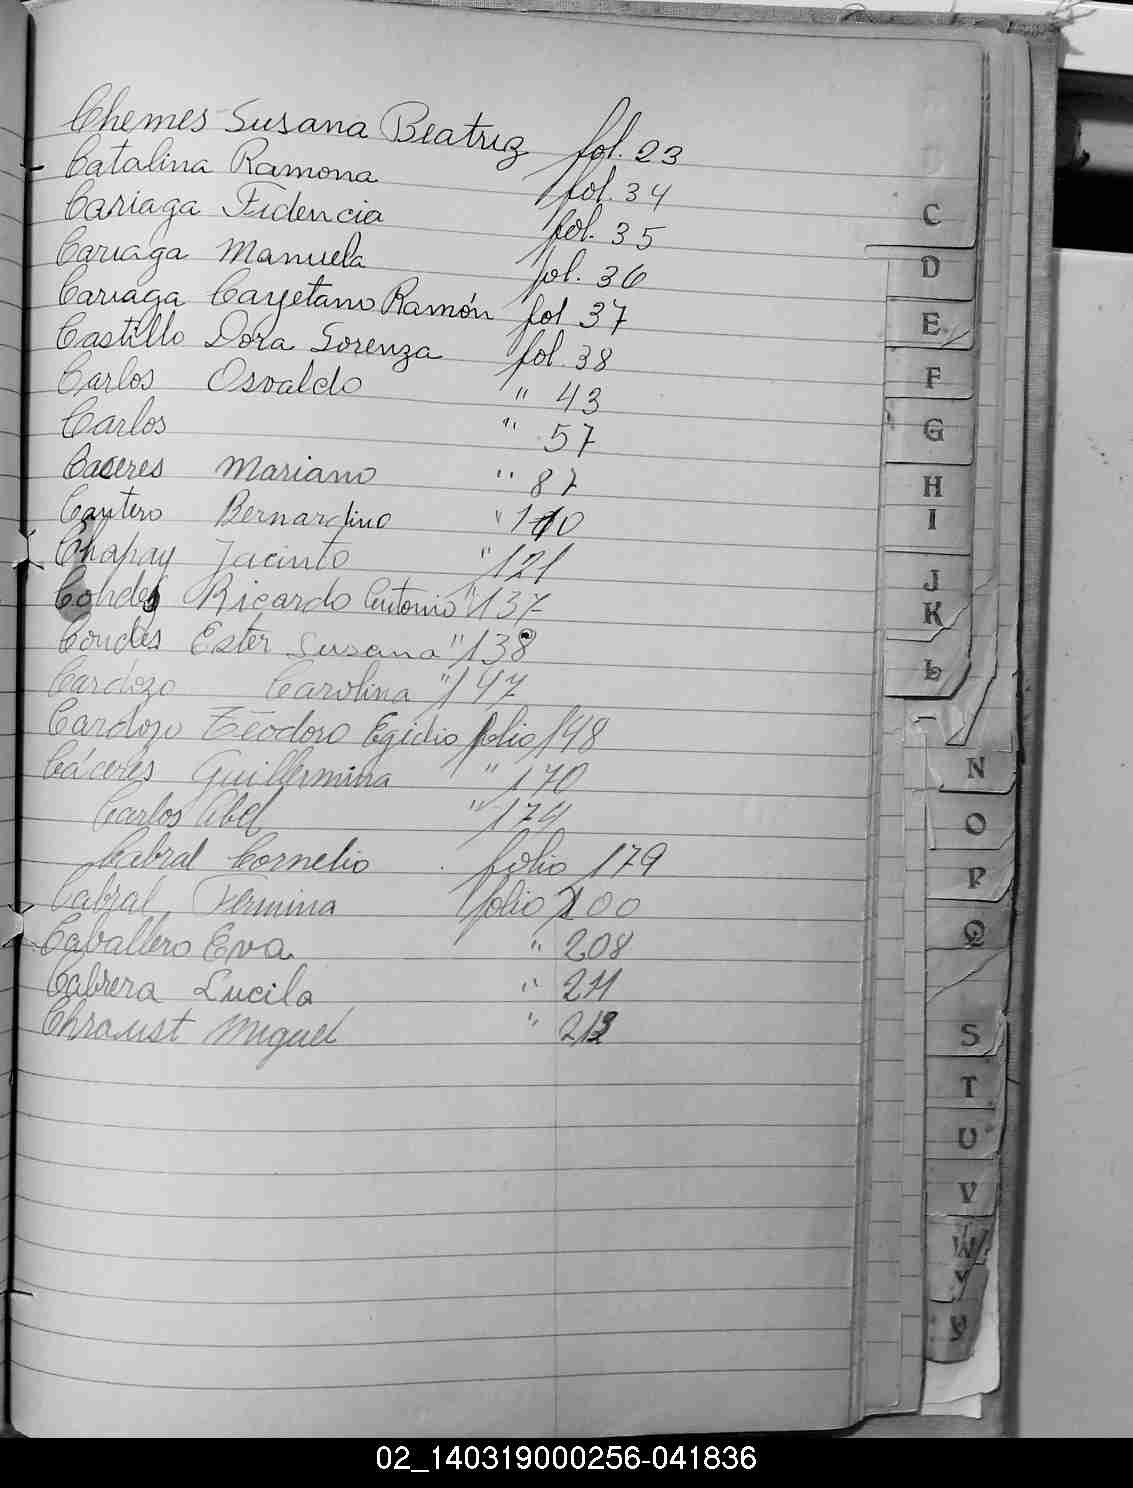 Chemes Susana Beatriz fol. 23
Catalina Ramona fol. 34
Cariaga Fidencia fol. 35
Cariaga Manuela fol. 36
Cariaga Cayetano Ramón fol 37
Castillo Dora Lorenza fol. 38
Carlos Osvaldo " 43
Carlos " 57
Caceres Mariano " 87
Cantero Bernardino " 110
Chapay Jacinto " 121
Condes Ricardo Antonio " 137
Condes Ester Susana " 138
Cardozo Carolina " 147
Cardozo Teodoro Egidio folio 148
Cáceres Guillermina " 170
Carlos Abel " 174
Cabral Cornelio folio 179
Cabral Fermina folio 200
Caballero Eva " 208
Cabrera Lucila " 211
Chraust Miguel "
C
D
E
F
G
H
I
J
K
L
N
O
P
Q
S
T
U
V
W
02_140319000256-041836